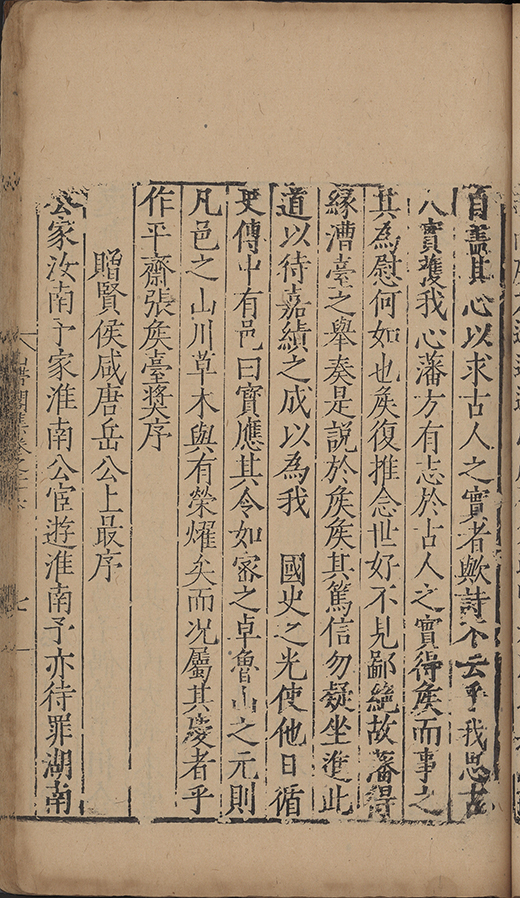 自盡其心以求古人之實者歟詩不云乎我思古
人實獲我心藩方有志於古人之實得矦而事之
其為慰何如也矦復推念世好不見鄙絶故藩得
緣漕臺之舉奏是説於矦矦其篤信勿疑坐進此
道以待嘉績之成以為我 國史之光使他日循
吏傳中有邑曰寶應其令如宻之卓魯山之元則
凡邑之山川草木與有榮燿矣而况屬其慶者乎
作平齋張矦臺奨序
贈賢侯咸唐岳公上最序
公家汝南予家淮南公宦遊淮南予亦待罪湖南
湖集卷之
七